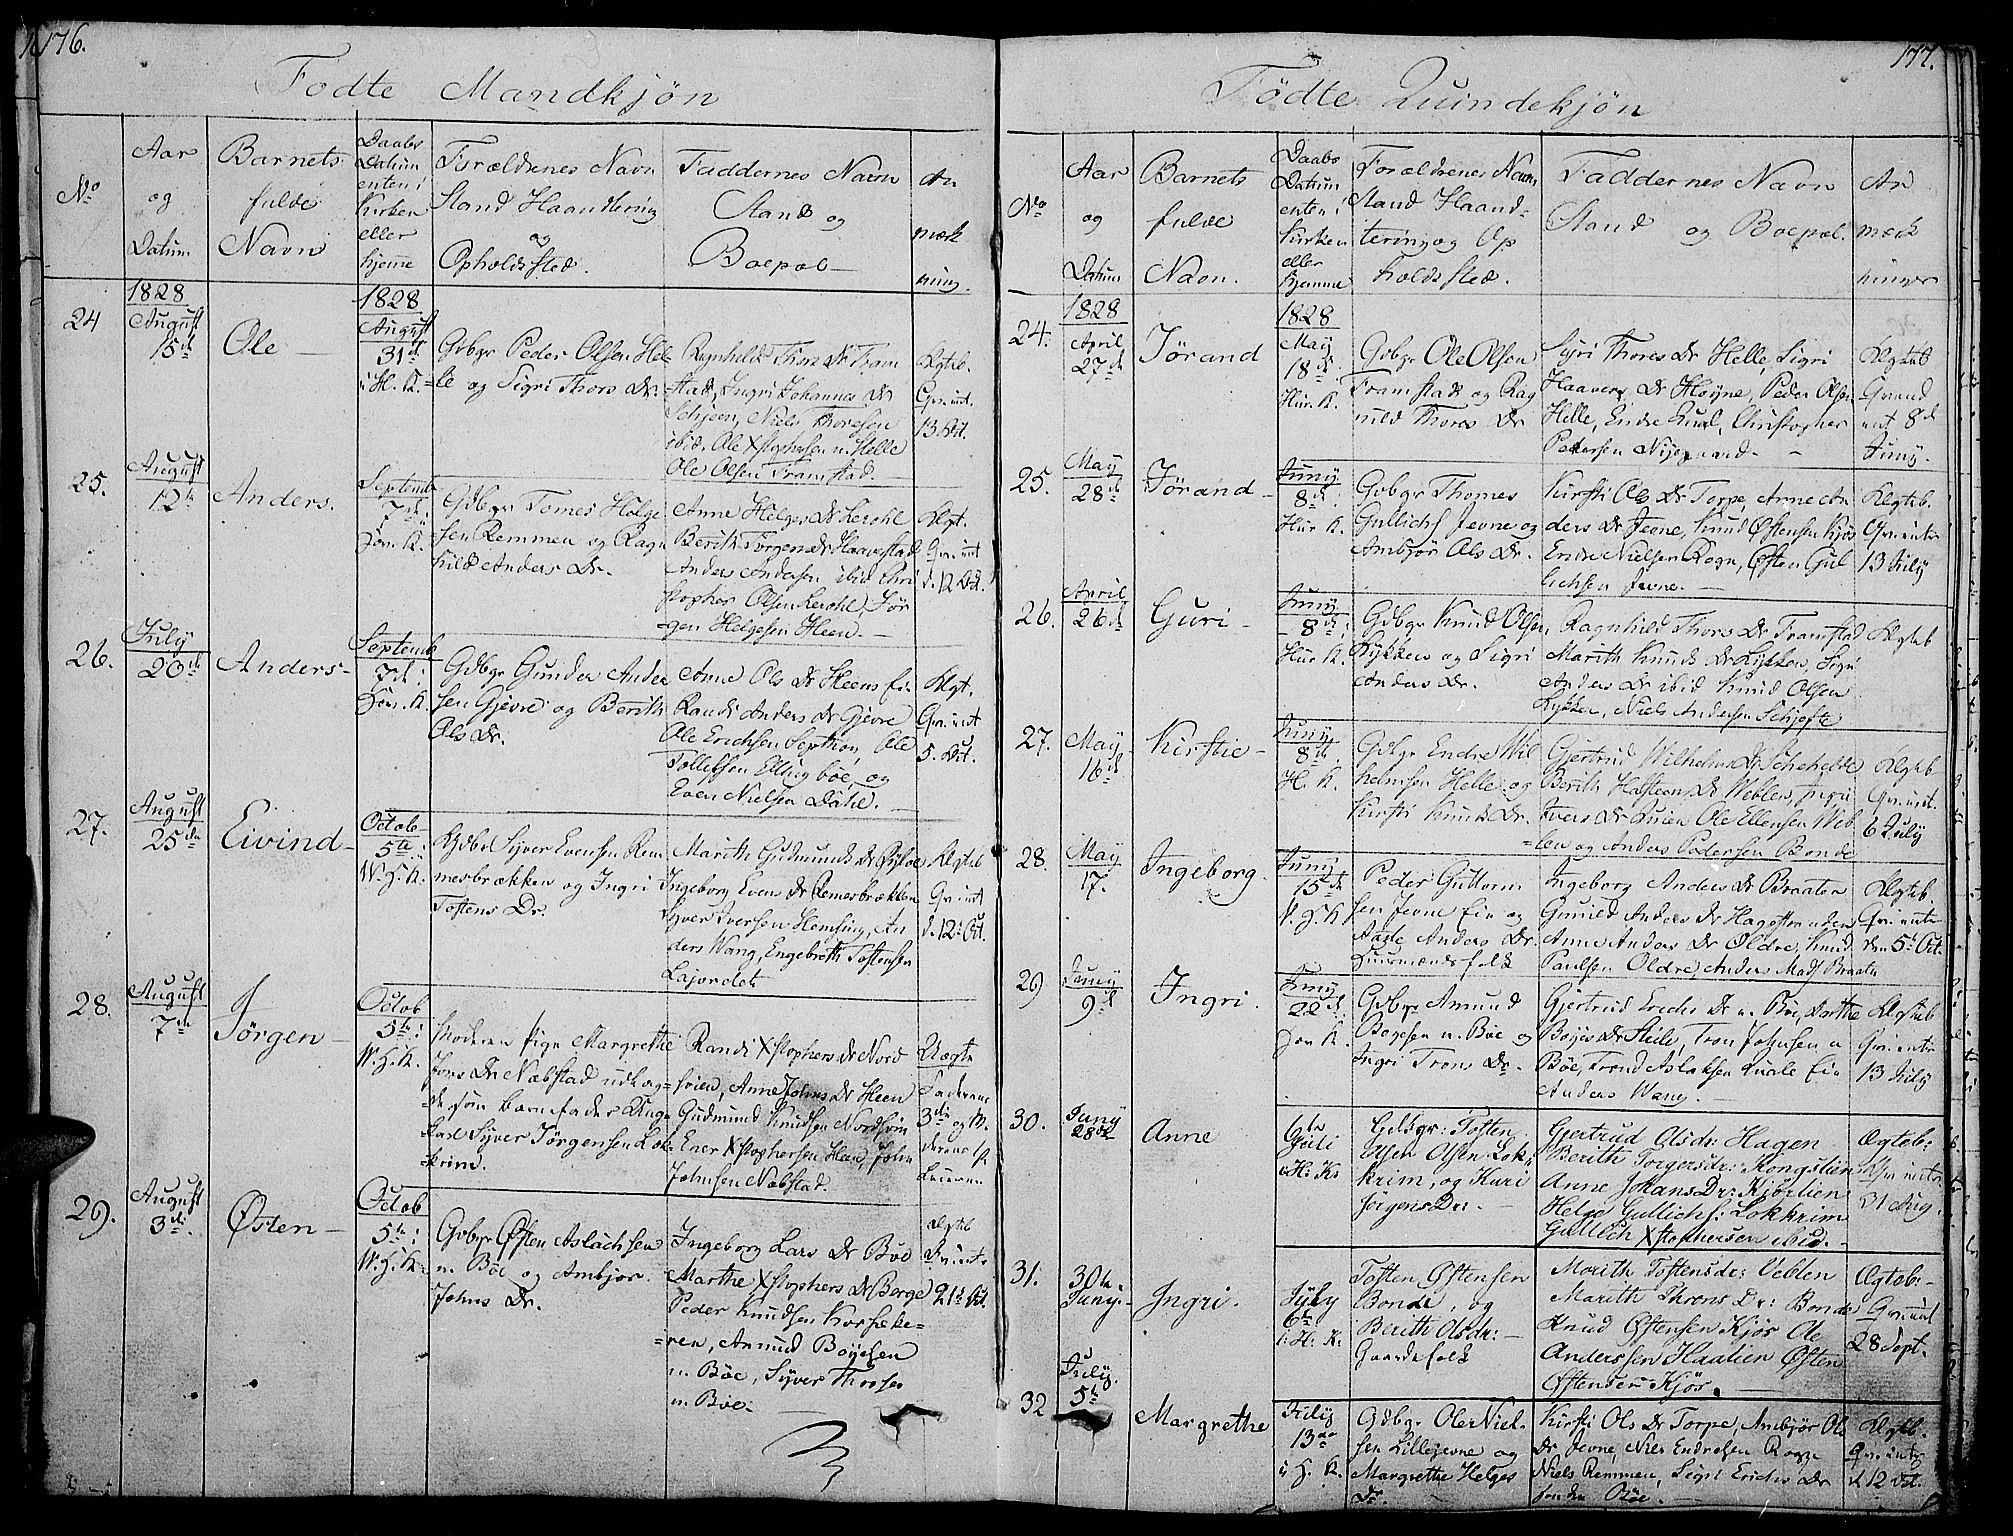 176.
Fødte Mandkjøn
No
Aar og Datum
Barnets fulde Navn
Daabs Datum enten i Kirken eller hjeme
Forældrenes Navn Stand Haandtering og Opholdssted.
Faddernes Navn Stand og Boepæl
An mærk ning.
24
1828 August 15de
Ole
1828 August 31te H. K.
Gdbgr Peder Olsen Helle og Sigri Thors Dr.
Ragnhild Thors Dr Framstad, Ingri Johannes Dr
Schjeen, Niels Thoresen
ibid. Ole Xstophersen n. Helle
Ole Olsen Framstad.
25.
August 12te
Anders.
Septemb 7de
Gdbgr Tomes Helgesen Remmen og Ragnhild Anders Dr.
Anne Helges Dr Kerohl
Berith Torgers Dr Haavestad
Anders Andersen ibid Christopher Olsen Kerohl, Jørgen Helgesen Heen.
Ægt. Qv. int. d. 12 Oct.
26.
July 20de
Anders
Septemb 7d
Gdbgr Gunder Andersen Gjevre og Berith Ols Dr.
Anne Ols Dr Heens
Randi Anders Dr Gjevre
Ole Erichsen, Ole
Tollefsen Ellingbøe, og
Even Nielsen Dahl.
Ægt. Qv. int 5. Oct.
27.
August 25de
Eivind
Octob 5te W. S. K.
Syver Evensen Remmesbrækken og Ingri Tostens Dr.
Marith Gudmunds Dr
Ingeborg Evens Dr Remesbrækken
Syver Iversen Hemsing, Anders Wang, Engebreth Tostensen
Ægteb Qv. int d. 12 Oct.
28.
August 7de
Jørgen
Octob 5te W. S. K.
Moderen Pige Margrethe
Jons Dr Næbstad udlagde som barnefader
Syver Jørgensen Lokrim.
Randi Xstophers Dr Nordsvien, Anne Johns Dr Heen
Gudmund Knudsen Nordsvien
Even Xstophersen Heen, John
Johnsen Næbstad.
Uægte
29.
August 3de
Østen
Octob 5te W. S. K.
Gdbgr Østen Aslachsen
n. Bøe og Ambjør
Johns Dr.
Ingeborg Lars Dr Bøe
Marthe Xstophers Dr Berge
Peder Knudsen
Amund Boyesen
n. Bøe, Syver Thorsen
n. Bøe.
21 Oct.
177.
Fødte Quindekjøn
No
Aar og Datum
Barnets fulde Navn.
Daabs Datum enten i Kirken eller hjemme
Forældrenes Navn Stand Haandtering og Opholdssted.
Faddernes Navn Stand og Boepæl.
An mærk ninger
24.
1828 April 27de
Jørand
1828 May 18de Hur. K.
Gdbgr Ole Olsen
Framstad og Ragnild Thores Dr
Siyri Thores Dr Helle, Sigri
Haavers Dr Høyne, Peder Olsen
Helle, Endre Qual, Christopher
Pedersen Nigaard.
Ægteb Qv. int 8d Juny.
25.
May 28d
Jørand
Juny 8d Hur K.
Gdbgr Thomes
Gullichs Jevne og
Ambjør Ols Dr.
Kirsti Ols Dr Torpe, Anne Anders Dr Jevne, Knud Østensen Kjøs
Endre Nielsen Rogn, Østen Gullichsen Jevne.
Ægteb Qv. intr 13 July
26.
April 26d
Guri
Juny 8d Hur K.
Gdbgr Knud Olsen
Lykken og Sigri
Anders Dr.
Ragnhild Thors Dr Framstad
Marith Knuds Dr Lykken, Sigri
Anders Dr ibid Knud Olsen
Lykken, Niels Andersen
Ægteb
27.
May 16d
Kirstie
Juny 8d H. K.
Gdbgr Endre Wilhelmsen Helle og
Kirsti Knuds Dr.
Gjertrud Wilhelms Dr
Berith Halsteens Dr Weblen, Ingri
Ivers Dr Ole Ellensen Weblen og Anders Pedersen Bonde
Ægteb. Qv. int. 6 July
28.
May 17.
Ingeborg.
Juny 15de
Peder Guttormsen Jevne Eie og
Aagte Anders Dr.
Huusmandsfolk
Ingeborg Anders Dr Braaten
Gunild Anders Dr Hagestranden
Anne Anders Dr Oldre, Knud
Paulsen Oldre, Anders Mads Braaten
Ægteb. Qv. intr den 5t Oct.
29
Juny 9d
Ingri.
Juny 22d
Gdbgr Amund
Boyesen n. Bøe og
Ingri Trons Dr.
Gjertrud Erichs Dr n. Bøe, Dorthe
Boyes Dr, Tron Johnsen n
Bøe, Trond Aslaksen Quale Eie
Anders Wang.
Ægteb Qv. intr 13 July
30.
Juny 28de
Anne
6te Juli H: K:
Gdbgr: Tosten
Olsen Lokkrim, og Kari
Jørgens Dr:
Gjertrud Olsdr: Hagen
Berith Torgersdr: Kongslien
Anne Johans Dr: Kjørlien
Helge Gullichs: Lokkrim
Gullich Xstophersen ibid.
Ægteb: Qv. intr 31 Aug.
31.
30te Juny.
Ingri.
July 6te H: K:
Tosten Østensen
Bonde, og
Berith Olsdr:
Gaardsfolk
Marith Tostensdr: Veblen
Marith Dr: Bonde
Knud Østensen Kjøs Ole
Anderssen Haalien Østen
Østensen Kjøs.
Ægteb: Qv int 28 Sept.
32
July 5te
Margrethe
July 13de
Gdbgr Ole Nielsen Lillejevne og
Margrethe Helges
Dr.
Kirsti Ols Dr Torpe, Ambjør Ols
Dr Jevne, Niels Endresen Rogne
Niels Remmen, Sigri Erichs Dr
Bøe.
Ægteb. Qv. intr d 12 Oct.